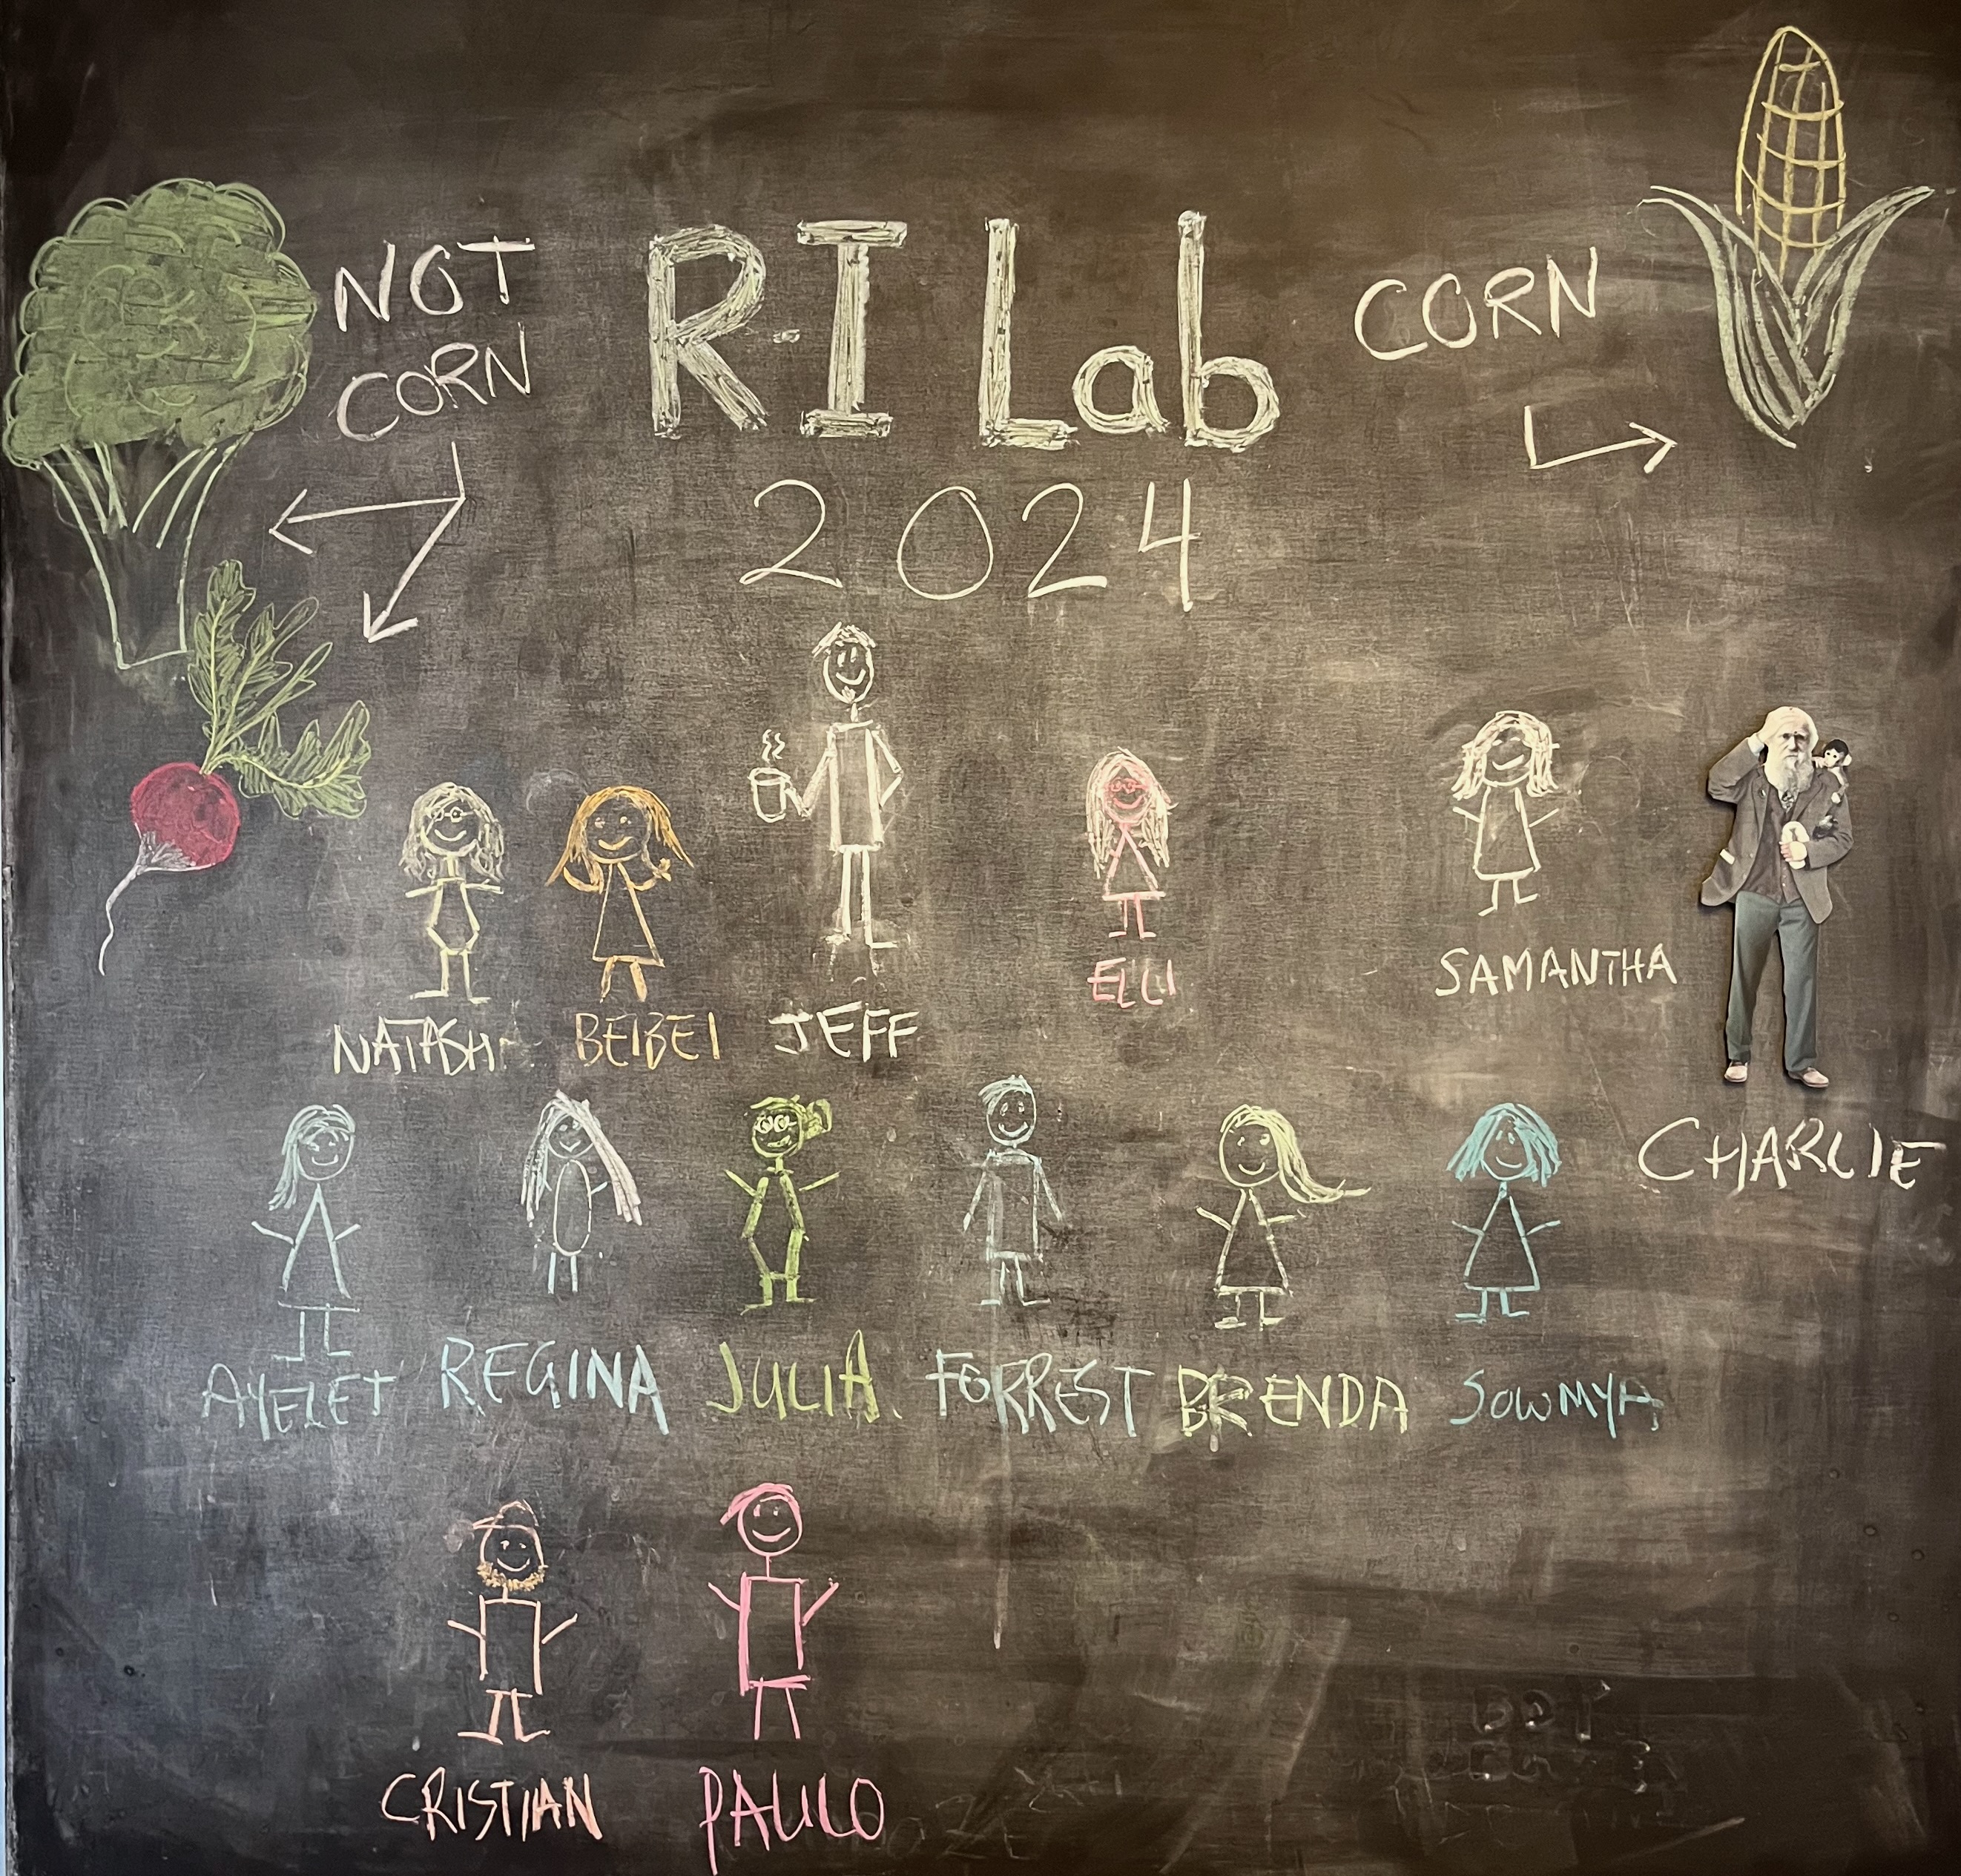 NOT
CORN
R-I Lab
2024
CORN
NATASHA
BEIBEI
JEFF
ELLI
SAMANTHA
CHARLIE
AYELET
REGINA
JULIA
FORREST
BRENDA
SOWMYA
CRISTIAN
PAULO